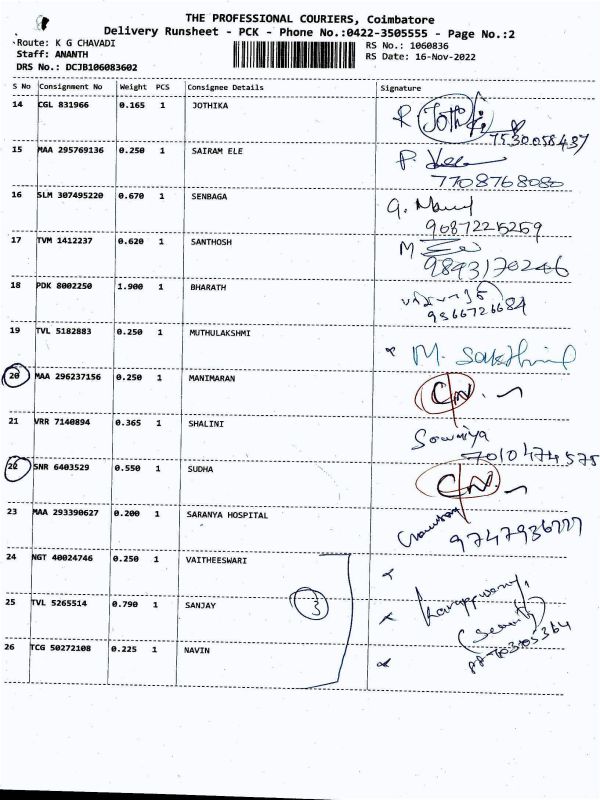 THE PROFESSIONAL COURIERS, Coimbatore
Delivery Runsheet - PCK - Phone No.:0422-3505555 - Page No.:2
Route: K G CHAVADI
Staff: ANANTH
DRS No.: DCJB106083602
RS No.: 1060836
RS Date: 16-Nov-2022
S No Consignment No Weight PCS Consignee Details Signature
14 CGL 831966 0.165 1 JOTHIKA
7530058437
15 MAA 295769136 0.250 1 SAIRAM ELE
7708768080
16 SLM 307495220 0.670 1 SENBAGA
9087225259
17 TVM 1412237 0.620 1 SANTHOSH M
9843170246
18 PDK 8002250 1.900 1 BHARATH
9566726684
19 TVL 5182883 0.250 1 MUTHULAKSHMI
20 MAA 296237156 0.250 1 MANIMARAN
21 VRR 7140894 0.365 1 SHALINI
7010474575
22 SNR 6403529 0.550 1 SUDHA
23 MAA 293390627 0.200 1 SARANYA HOSPITAL
24 NGT 40024746 0.250 1 VAITHEESWARI
25 TVL 5265514 0.790 1 SANJAY 3
26 TCG 50272108 0.225 1 NAVIN